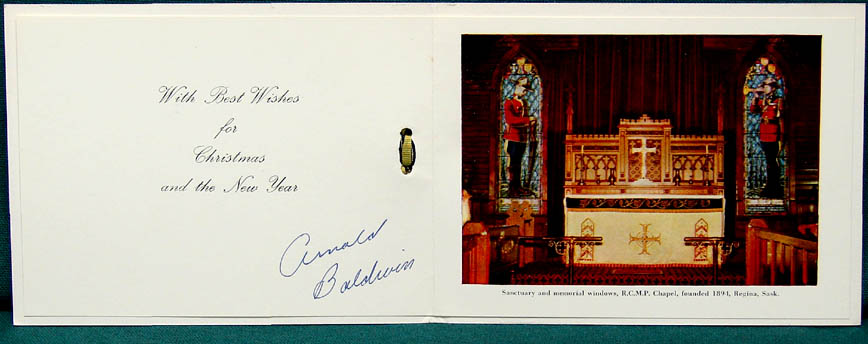 With Best Wishes
for
Christmas
and the New Year
Arnold
Baldwin
Sanctuary and memorial windows, R.C.M.P. Chapel, founded 1894, Regina, Sask.